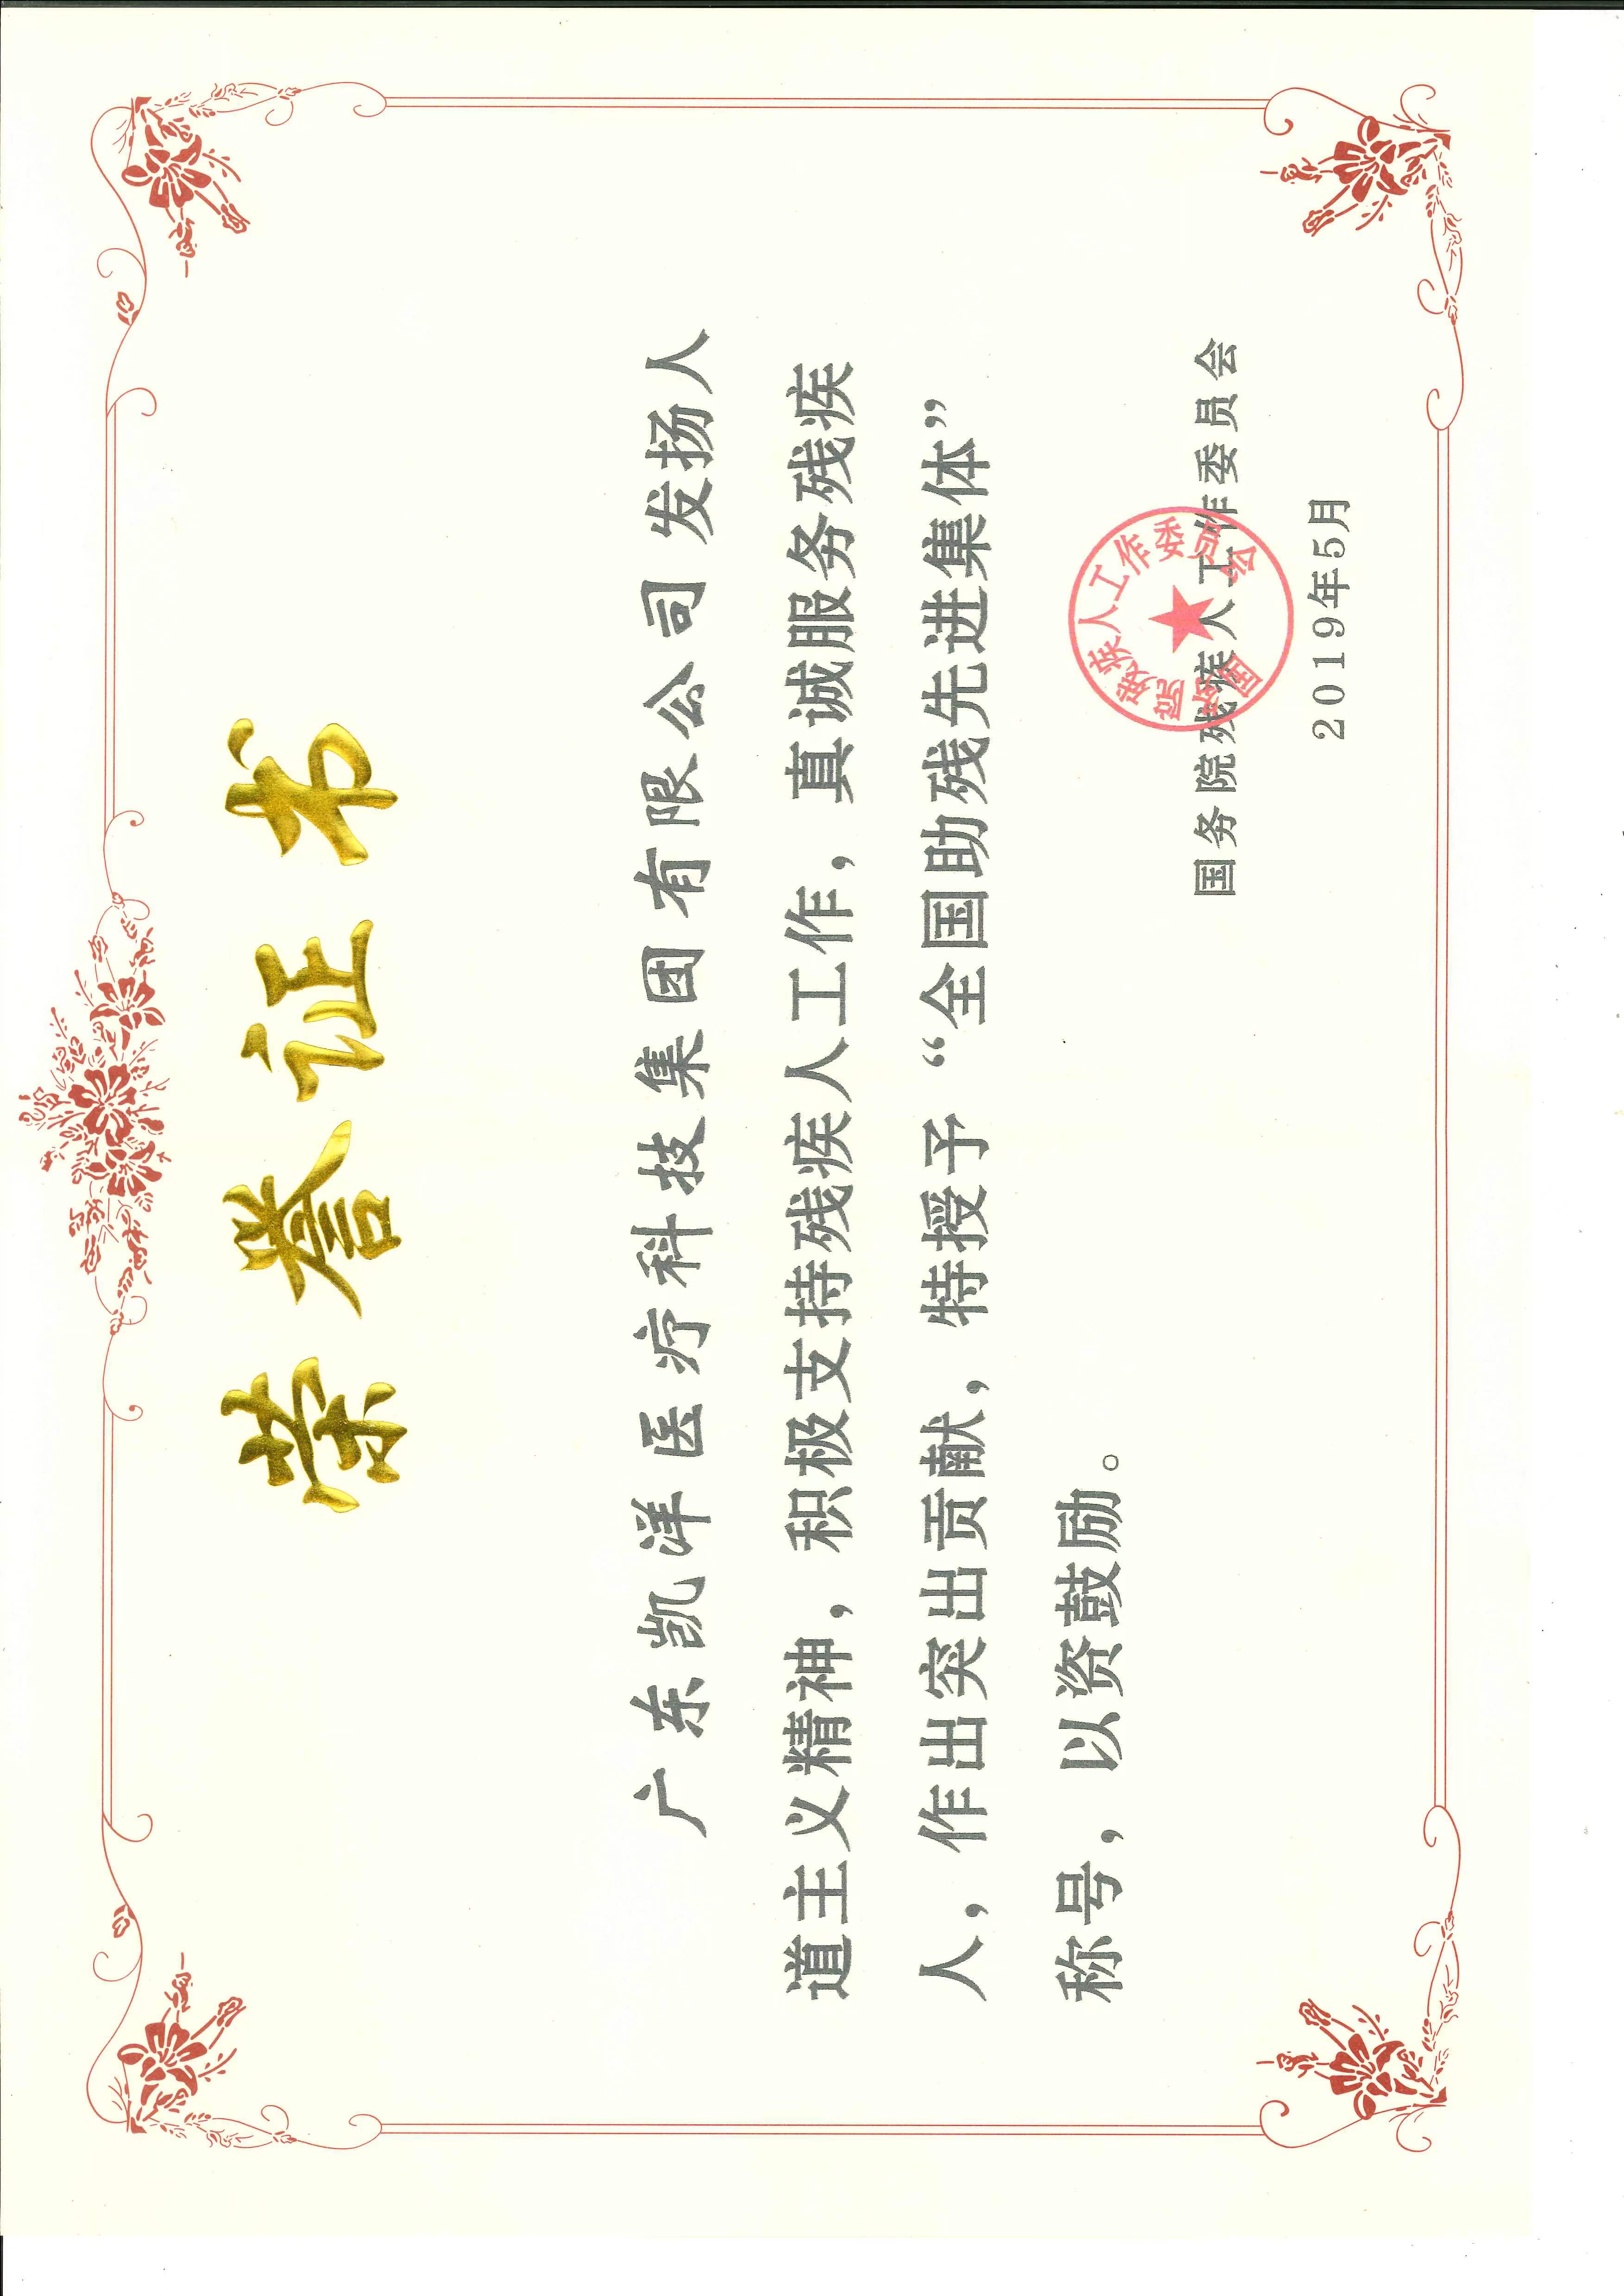 荣誉证书
广东凯洋医疗科技集团有限公司发扬人
道主义精神，积极支持残疾人工作，真诚服务残疾
人，作出突出贡献，特授予“全国助残先进集体”
称号，以资鼓励。
国务院残疾人工作委员会
国务院残疾人工作委员会
2019年5月